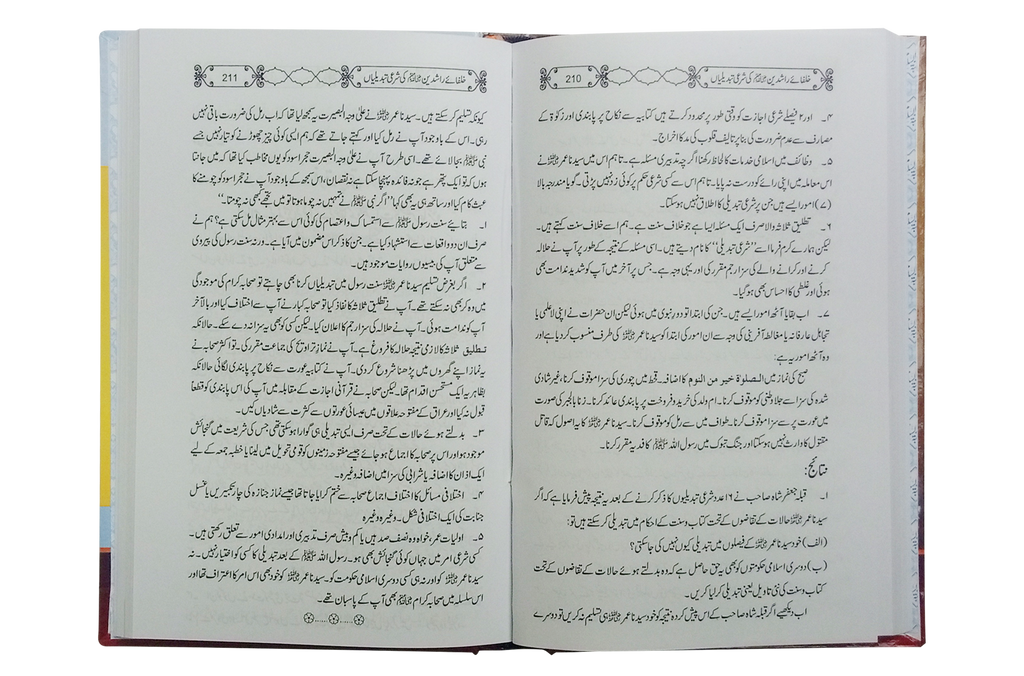 خلفائے راشدینؓ کی شرعی تبدیلیاں
210
۴۔ اور ۲ فیصلے شرعی اجازت کو وقتی طور پر محدود کرتے ہیں کتابیہ سے نکاح پر پابندی اور زکوٰۃ کے
مصارف سے عدم ضرورت کی بنا پر تالیف قلوب کی مد کا اخراج۔
۵۔ وظائف میں اسلامی خدمات کا لحاظ رکھنا اگرچہ تدبیری مسئلہ ہے۔ تاہم اس میں سیدنا عمرؓ نے
اس معاملہ میں اپنی رائے کو درست نہ پایا۔ تاہم اس سے کسی شرعی حکم پر کوئی زد نہیں پڑتی۔ گویا مندرجہ بالا
(۷) امور ایسے ہیں جن پر شرعی تبدیلی کا اطلاق نہیں ہو سکتا۔
۶۔ تطلیق ثلاثہ والا صرف ایک مسئلہ ایسا ہے جو خلاف سنت ہے۔ ہم اسے خلاف سنت کہتے ہیں۔
لیکن ہمارے کرم فرما اسے ”شرعی تبدیلی“ کا نام دیتے ہیں۔ اسی مسئلہ کے نتیجہ کے طور پر آپ نے حلالہ
کرنے اور کرانے والے کی سزا رجم مقرر کی اور یہی وجہ ہے۔ جس پر آخر میں آپ کو شدید ندامت بھی
ہوئی اور غلطی کا احساس بھی ہو گیا۔
۷۔ اب بقایا آٹھ امور ایسے ہیں۔ جن کی ابتدا تو دور نبوی میں ہوئی لیکن ان حضرات نے اپنی لاعلمی یا
تجاہل عارفانہ یا مغالطہ آفرینی کی وجہ سے ان امور کی ابتدا کو سیدنا عمرؓ کی طرف منسوب کر دیا ہے اور
وہ آٹھ امور یہ ہے:
صبح کی نماز میں الصلوٰۃ خیر من النوم کا اضافہ۔ قحط میں چوری کی سزا موقوف کرنا، غیر شادی
شدہ کی سزا سے جلاوطنی کو موقوف کرنا۔ ام ولد کی خرید و فروخت پر پابندی عائد کرنا۔ زنا بالجبر کی صورت
میں عورت پر سے سزا موقوف کرنا۔ طواف میں سے رمل کو موقوف کرنا۔ سیدنا عمرؓ کا یہ اصول کہ قاتل
مقتول کا وارث نہیں ہو سکتا اور جنگ تبوک میں رسول اللہ ﷺ کا فدیہ مقرر کرنا۔
نتائج:
۱۔ قبلہ جعفر شاہ صاحب نے ۱۶ عدد شرعی تبدیلیوں کا ذکر کرنے کے بعد یہ نتیجہ پیش فرمایا ہے کہ اگر
سیدنا عمرؓ حالات کے تقاضوں کے تحت کتاب و سنت کے احکام میں تبدیلی کر سکتے ہیں تو:
(الف) خود سیدنا عمرؓ کے فیصلوں میں تبدیلی کیوں نہیں کی جا سکتی؟
(ب) دوسری اسلامی حکومتوں کو بھی یہ حق حاصل ہے کہ وہ بدلتے ہوئے حالات کے تقاضوں کے تحت
کتاب و سنت کی نئی تاویل یعنی تبدیلی کر لیا کریں۔
اب دیکھیے اگر قبلہ شاہ صاحب کے اس پیش کردہ نتیجہ کو خود سیدنا عمرؓ ہی تسلیم نہ کریں تو دوسرے
خلفائے راشدینؓ کی شرعی تبدیلیاں
211
کیونکر تسلیم کر سکتے ہیں۔ سیدنا عمرؓ نے علیٰ وجہ البصیرت یہ سمجھ لیا تھا کہ اب رمل کی ضرورت باقی نہیں
رہی۔ اس کے باوجود آپ نے رمل کیا اور کہتے جاتے تھے کہ ہم ایسی کوئی چیز چھوڑنے کو تیار نہیں جسے
نبی ﷺ بجا لائے تھے۔ اسی طرح آپ نے علیٰ وجہ البصیرت حجر اسود کو یوں مخاطب کیا تھا کہ میں جانتا
ہوں کہ تو ایک پتھر ہے جو نہ فائدہ پہنچا سکتا ہے نہ نقصان، اس سمجھ کے باوجود آپ نے حجر اسود کو چومنے کا
عبث کام کیا اور ساتھ ہی یہ بھی کہا ”اگر نبی ﷺ نے تمہیں نہ چوما ہوتا تو میں تجھے کبھی نہ چومتا۔“
۱۔ بتایئے سنت رسول ﷺ سے استمساک و اعتصام کی کوئی اس سے بہتر مثال مل سکتی ہے؟ ہم نے
صرف ان دو واقعات سے استشہاد کیا ہے۔ جن کا ذکر اس مضمون میں آیا ہے۔ ورنہ سنت رسول کی پیروی
سے متعلق آپ کی بیسیوں روایات موجود ہیں۔
۲۔ اگر بغرض تسلیم سیدنا عمرؓ سنت رسول میں تبدیلیاں کرنا بھی چاہتے تو صحابہ کرام کی موجودگی
میں وہ کر بھی نہ سکتے تھے۔ آپ نے تطلیق ثلاثہ کا نفاذ کیا تو صحابہ کبار نے آپ سے اختلاف کیا اور بالآخر
آپ کو ندامت ہوئی۔ آپ نے حلالہ کی سزا رجم کا اعلان کیا۔ لیکن کسی کو بھی یہ سزا نہ دے سکے۔ حالانکہ
تطلیق ثلاثہ کا لازمی نتیجہ حلالہ کا فروغ ہے۔ آپ نے نماز تراویح کی جماعت مقرر کی۔ تو اکثر صحابہ نے
یہ نماز اپنے گھروں میں پڑھنا شروع کر دی۔ آپ نے کتابیہ عورت سے نکاح پر پابندی لگائی حالانکہ
بظاہر یہ ایک مستحسن اقدام تھا۔ لیکن صحابہ نے قرآنی اجازت کے مقابلہ میں آپ کی اس پابندی کو قطعاً
قبول نہ کیا اور عراق کے مفتوحہ علاقوں میں عیسائی عورتوں سے کثرت سے شادیاں کیں۔
۳۔ بدلتے ہوئے حالات کے تحت صرف ایسی تبدیلی ہی گوارا ہو سکتی تھی جس کی شریعت میں گنجائش
موجود ہو اور اس پر صحابہ کا اجماع ہو جائے جیسے مفتوحہ زمینوں کو قومی تحویل میں لینا یا خطبہ جمعہ کے لیے
ایک اذان کا اضافہ یا شرابی کی سزا میں اضافہ وغیرہ۔
۴۔ اختلافی مسائل کا اختلاف اجماع صحابہ سے ختم کرایا جاتا تھا جیسے نماز جنازہ کی چار تکبیریں یا غسل
جنابت کی ایک اختلافی شکل۔ وغیرہ وغیرہ
۵۔ اولیات عمر، خواہ وہ نصف صد ہیں یا کم و بیش صرف تدبیری اور امدادی امور سے تعلق رکھتی ہیں۔
کسی شرعی امر میں جہاں کوئی گنجائش بھی ہو۔ رسول اللہ ﷺ کے بعد تبدیلی کا کسی کو اختیار نہیں۔ نہ
سیدنا عمرؓ کو اور نہ ہی کسی دوسری اسلامی حکومت کو۔ سیدنا عمرؓ کو خود بھی اس امر کا اعتراف تھا اور
اس سلسلہ میں صحابہ کرامؓ بھی آپ کے پاسبان تھے۔